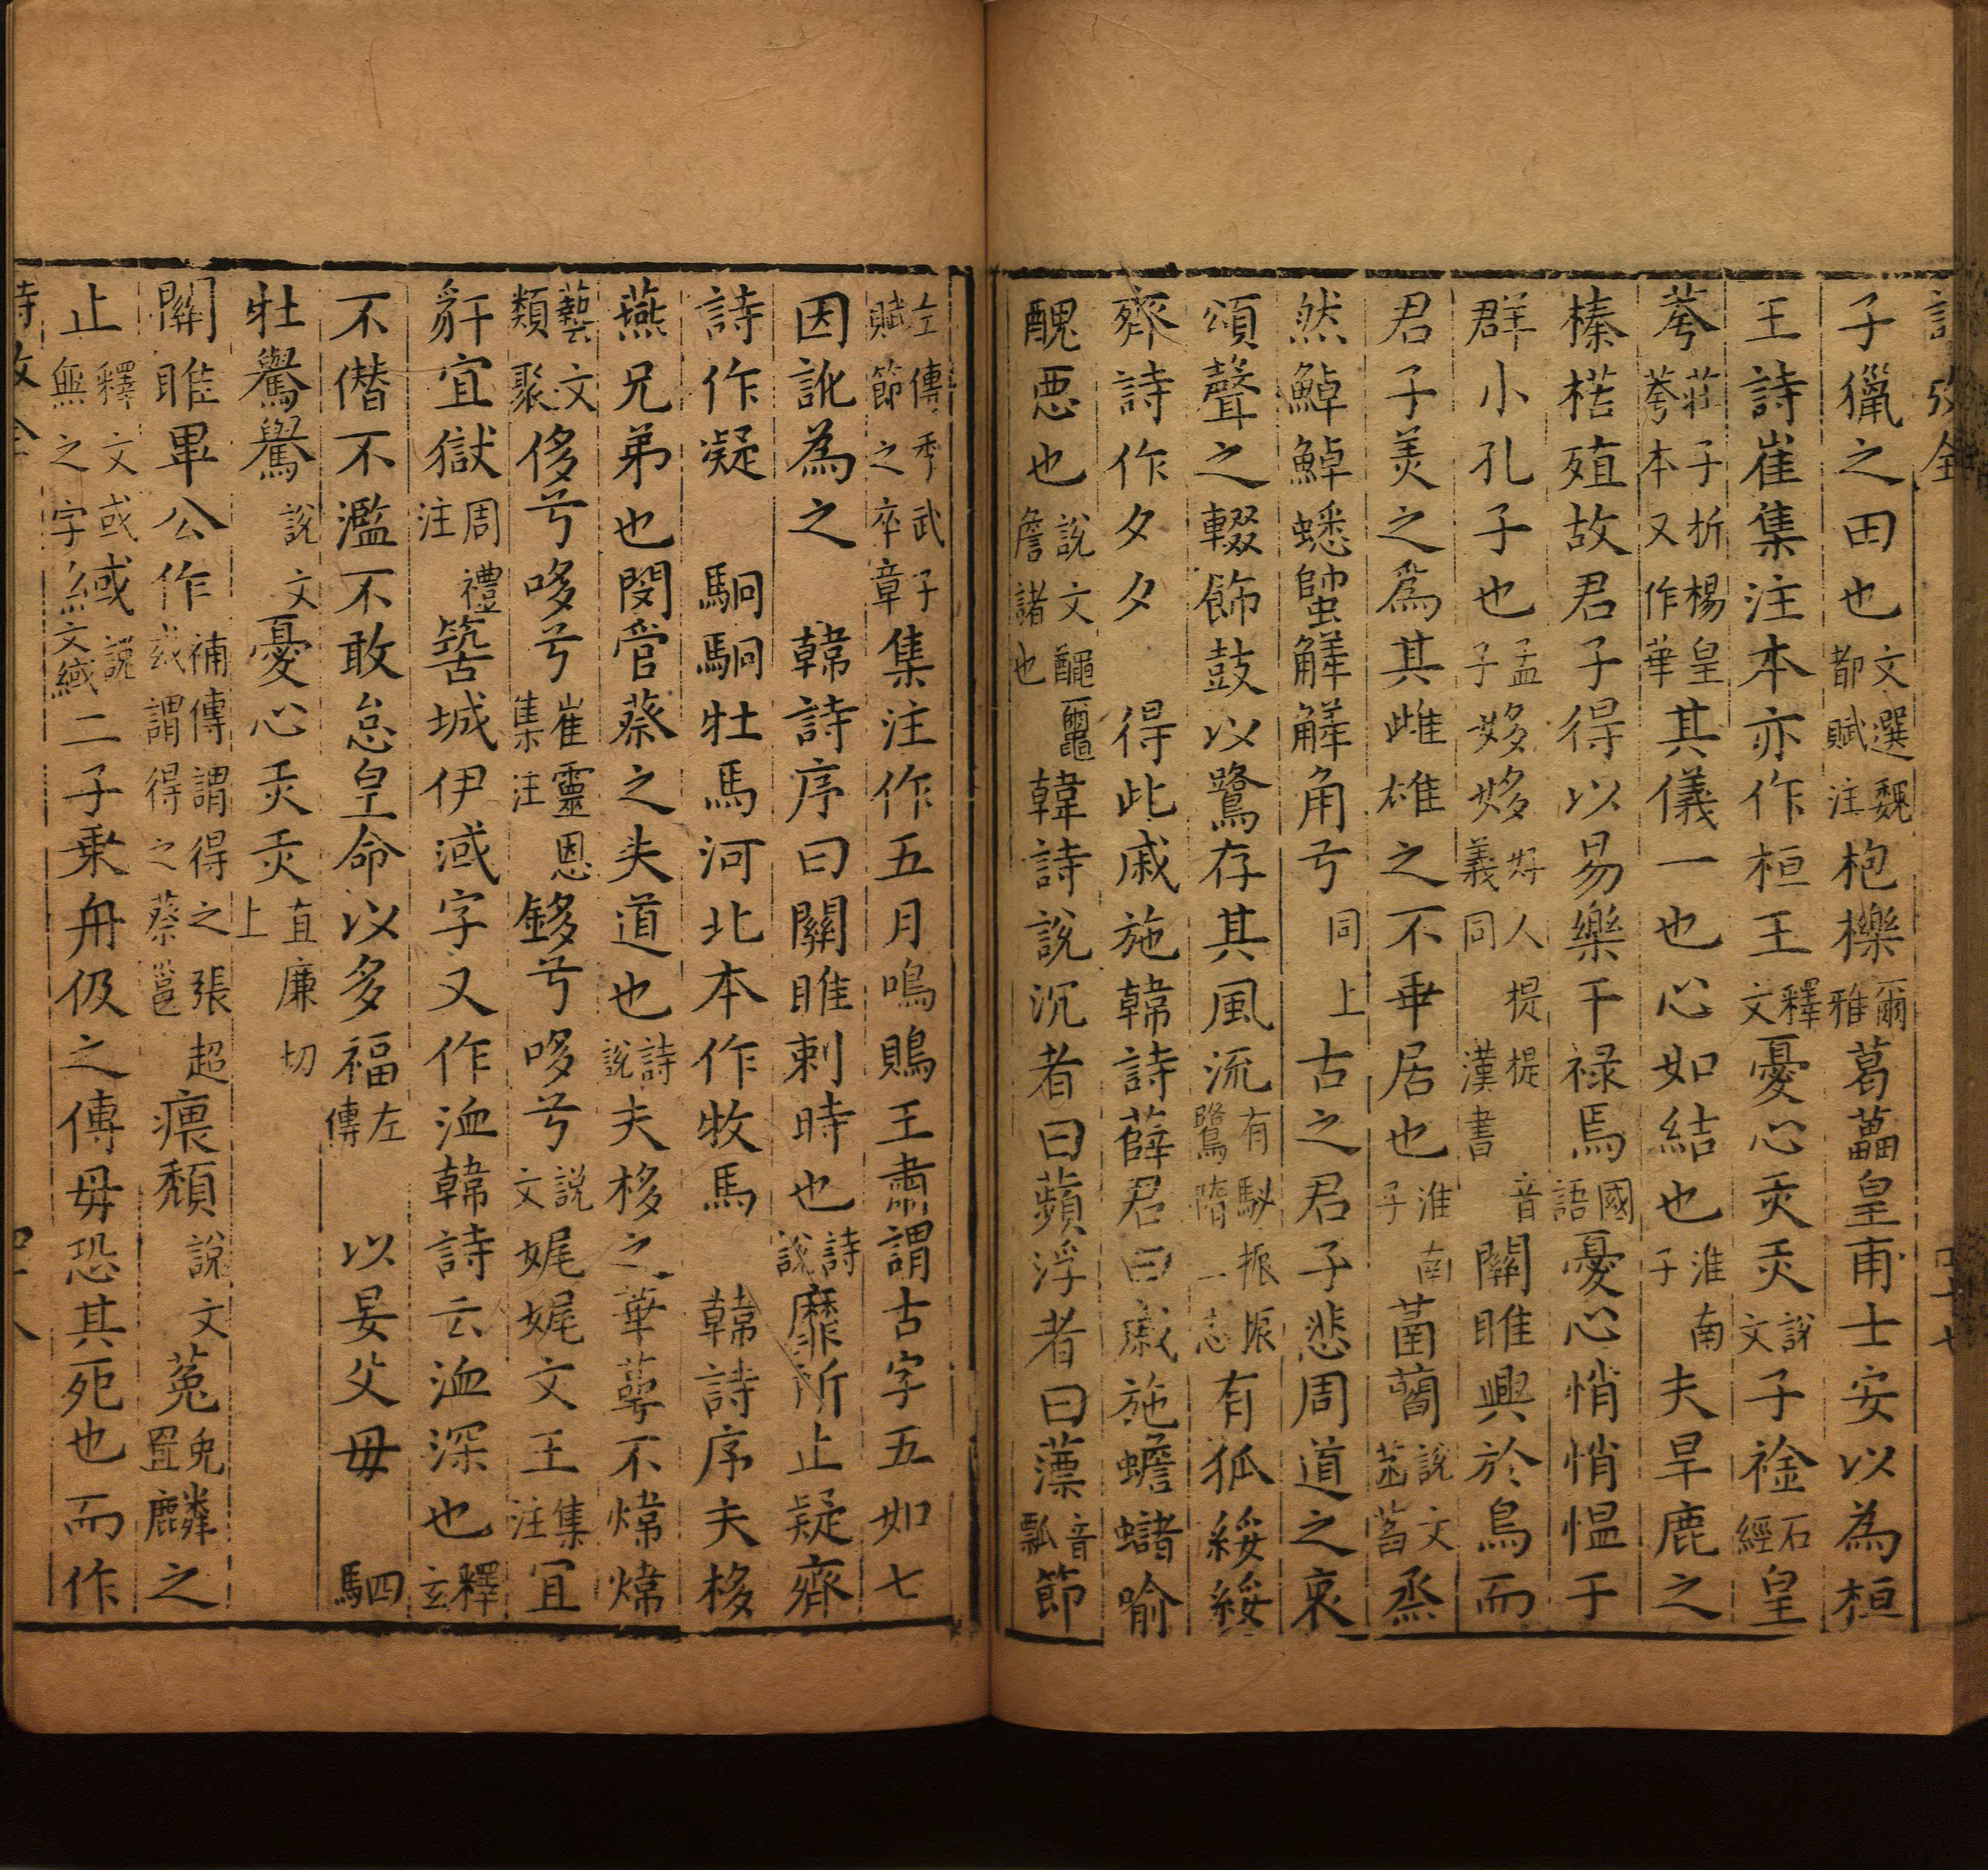 子獵之田也文選魏都賦注枹櫟爾雅葛藟皇甫士安以為桓
王詩崔集注本亦作桓王釋文憂心炗炗說文子襘石經皇
荂莊子折楊皇荂本又作華其儀一也心如結也淮南子夫旱鹿之
榛楛殖故君子得以易樂干祿焉國語憂心悄悄愠于
群小孔子也孟子姼姼好人提提義同漢書音關雎興於鳥而
君子美之為其雌雄之不乖居也淮南子菡萏說文烝
然鯙鯙蟋蟀觲觲角兮同上古之君子悲周道之衰
頌聲之輟飾鼓以鷺存其風流有駜振振鷺隋志有狐綏綏
齊詩作夕夕 得此戚施韓詩薛君曰戚施蟾蠩喻
醜惡也說文詹諸也韓詩說沉者曰蘋浮者曰薸音瓢節
左傳季武子賦節之卒章集注作五月鳴鵙王肅謂古字五如七
因訛為之 韓詩序曰關雎刺時也詩說靡所止疑齊
詩作凝 駉駉牡馬河北本作牧馬 韓詩序夫栘
燕兄弟也閔管蔡之失道也詩說夫栘之華萼不煒煒
藝文類聚侈兮哆兮崔靈恩集注鉹兮哆兮說文娓娓文王集注宜
豻宜獄周禮注築城伊淢字又作洫韓詩云洫深也釋玄
不僭不濫不敢怠皇命以多福左傳 以晏父母 駟
牡驕驕說文憂心炗炗直廉切上
關雎畢公作補傳謂得之張超或謂得之蔡邕㾗頹說文菟兔罝麟之
止釋文或無之字緎說文緎二子乘舟伋之傅母恐其死也而作